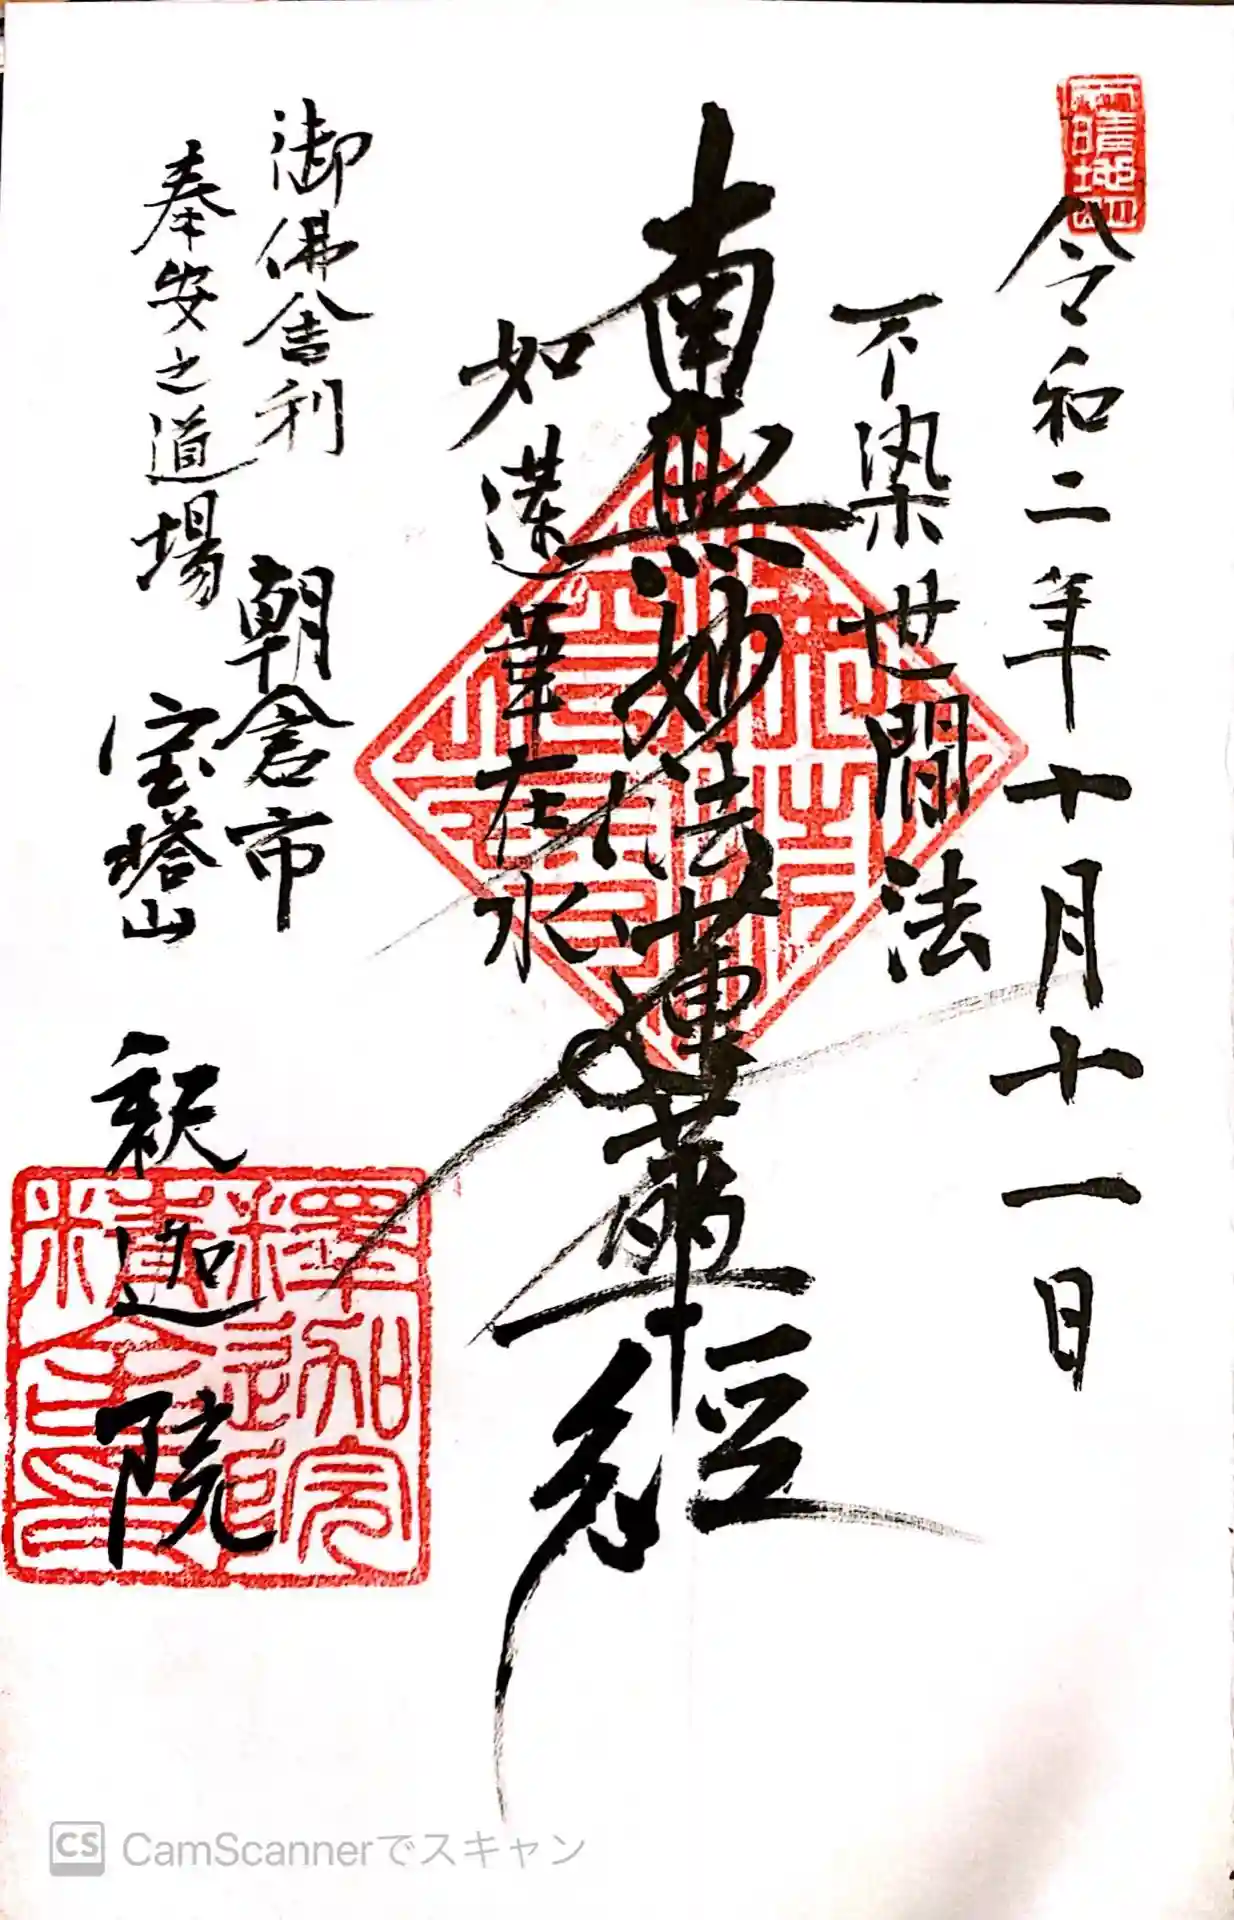 令和二年十月十一日
不染世間法
南無妙法蓮華經
如蓮華在水
御佛舎利
奉安之道場
朝倉市
宝塔山
釈迦院
釋迦院
CS CamScannerでスキャン